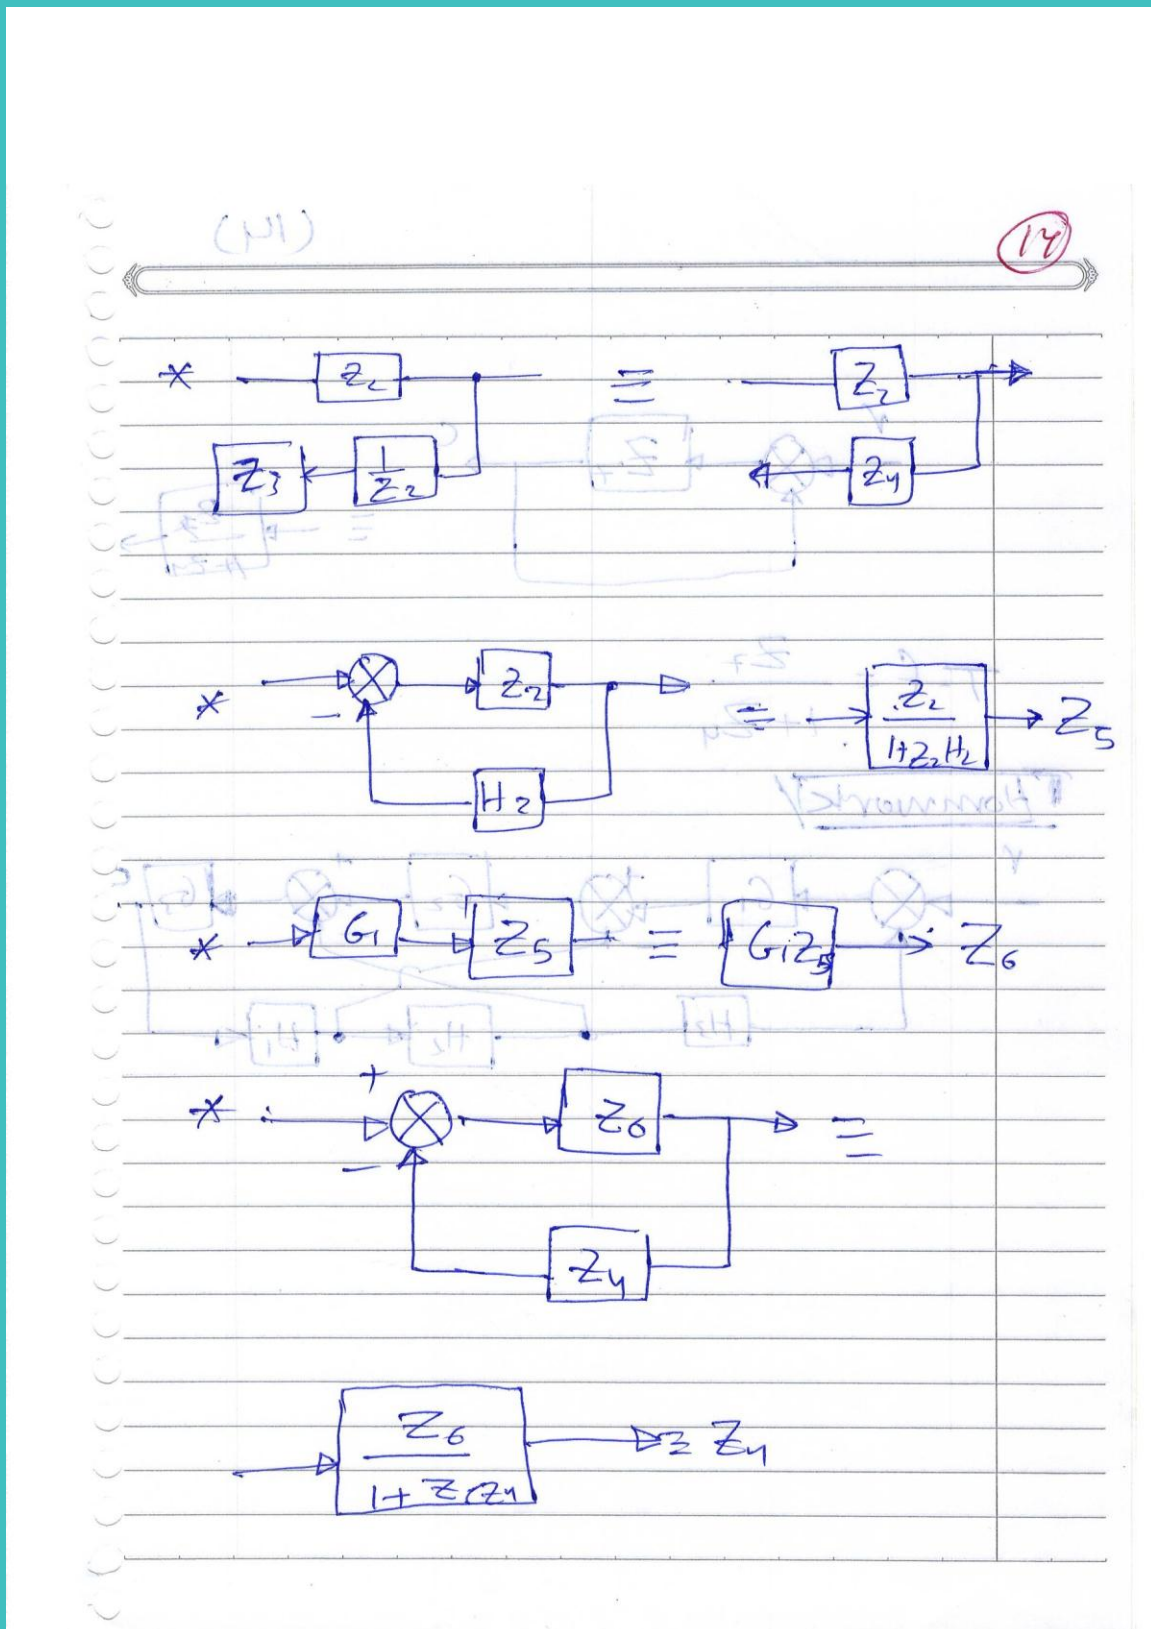 14
* Z2 ≡ Z2
Z3 1/Z2 Z4
* Z2 ≡ Z2/(1+Z2H2) → Z5
−
H2
* G1 Z5 ≡ G1Z5 → Z6
+
* Z6 ≡
−
Z4
Z6
1+
Z4